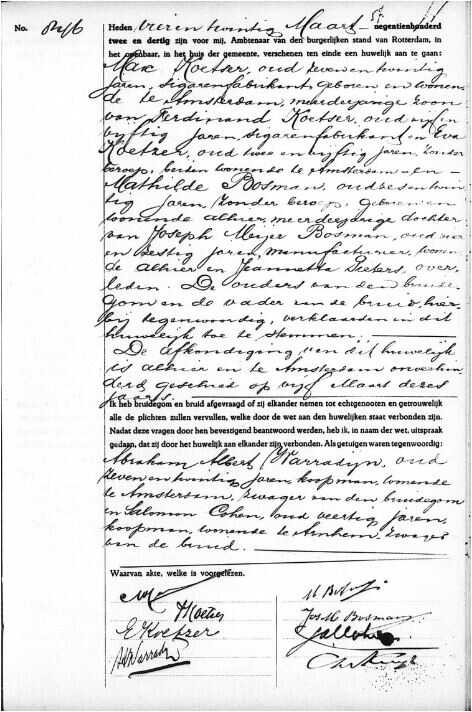 No.
Heden vier en twintig Maart negentienhonderd
twee en dertig zijn voor mij, Ambtenaar van den burgerlijken stand van Rotterdam, in
het openbaar, in het huis der gemeente, verschenen ten einde een huwelijk aan te gaan:
Max Koetser, oud zeven en twintig
jaren, sigarenfabrikant, geboren en wonen-
de te Amsterdam, meerderjarige zoon
van Ferdinand Koetser, oud vijf en
vijftig jaren, sigarenfabrikant en Eva
Koetzer, oud twee en vijftig jaren, zonder
beroep, beiden wonende te Amsterdam en
Mathilde Bosman, oud zes en twin-
tig jaren, zonder beroep, geboren en
wonende alhier, meerderjarige dochter
van Joseph Meijer Bosman, oud
en zestig jaren, manufacturier, wonen-
de alhier en Jeannetta Peeters, over-
leden. De ouders van den bruide-
gom en de vader van de bruid, hier-
bij tegenwoordig, verklaarden in dit
huwelijk toe te stemmen.
De afkondiging van dit huwelijk
is alhier en te Amsterdam onverhin-
derd geschied op vijf Maart dezes
jaars.
Ik heb bruidegom en bruid afgevraagd of zij elkander nemen tot echtgenooten en getrouwelijk
alle de plichten zullen vervullen, welke door de wet aan den huwelijken staat verbonden zijn.
Nadat deze vragen door hen bevestigend beantwoord werden, heb ik, in naam der wet, uitspraak
gedaan, dat zij door het huwelijk aan elkander zijn verbonden. Als getuigen waren tegenwoordig:
Abraham Albert Warradijn, oud
zeven en twintig jaren, koopman, wonende
te Amsterdam, zwager van den bruidegom
en Salomon Cohen, oud veertig jaren,
koopman, wonende te Arnhem, zwager
van de bruid.
Waarvan akte, welke is voorgelezen.
Koetser
E Koetzer
Jos M Bosman